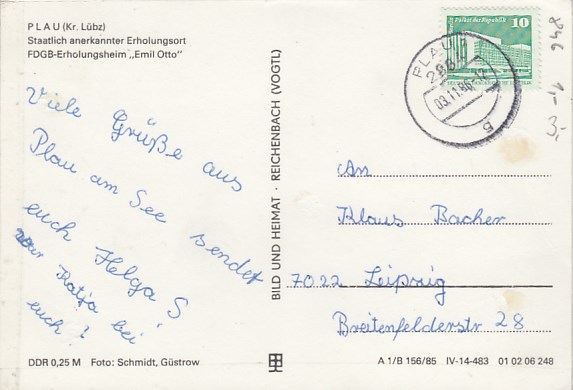 PLAU (Kr. Lübz)
Staatlich anerkannter Erholungsort
FDGB-Erholungsheim „Emil Otto"
Viele Grüße aus
Plau am See sendet
euch Helga S
war Katja bei
euch?
DDR 0,25 M Foto: Schmidt, Güstrow
BILD UND HEIMAT · REICHENBACH (VOGTL)
Palast der Republik 10
PLAU
03.11.86-12
B
846 1-
3,-
An
Klaus Bacher
7022 Leipzig
Breitenfelderstr 28
A 1/B 156/85 IV-14-483 01 02 06 248